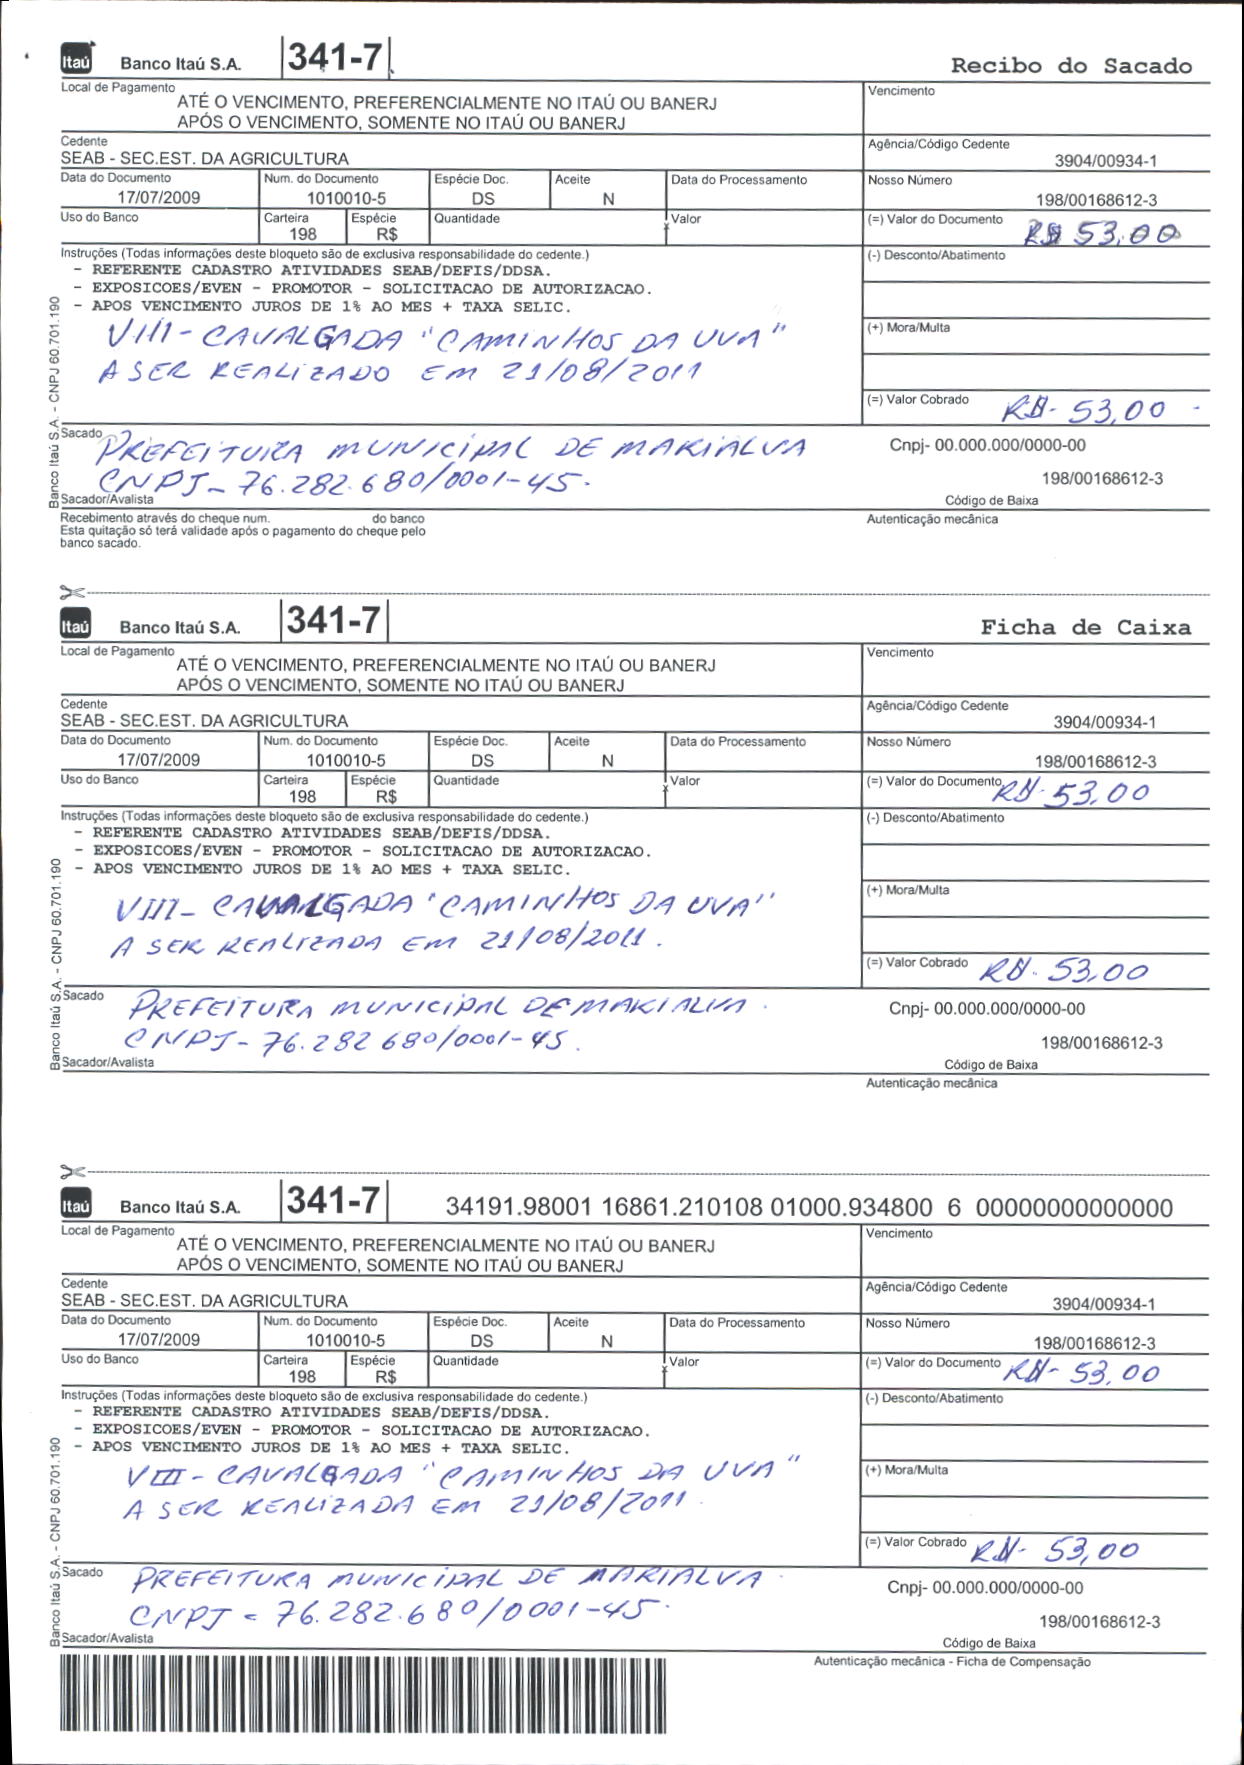 Itaú Banco Itaú S.A. 341-7 Recibo do Sacado
Local de Pagamento Vencimento
ATÉ O VENCIMENTO, PREFERENCIALMENTE NO ITAÚ OU BANERJ
APÓS O VENCIMENTO, SOMENTE NO ITAÚ OU BANERJ
Cedente Agência/Código Cedente
SEAB - SEC.EST. DA AGRICULTURA 3904/00934-1
Data do Documento Num. do Documento Espécie Doc. Aceite Data do Processamento Nosso Número
17/07/2009 1010010-5 DS N 198/00168612-3
Uso do Banco Carteira Espécie Quantidade Valor (=) Valor do Documento
198 R$ x R$ 53,00
Instruções (Todas informações deste bloqueto são de exclusiva responsabilidade do cedente.) (-) Desconto/Abatimento
- REFERENTE CADASTRO ATIVIDADES SEAB/DEFIS/DDSA.
- EXPOSICOES/EVEN - PROMOTOR - SOLICITACAO DE AUTORIZACAO.
- APOS VENCIMENTO JUROS DE 1% AO MES + TAXA SELIC.
VIII - CAVALGADA "CAMINHOS DA UVA" (+) Mora/Multa
A SER REALIZADO EM 21/08/2011
(=) Valor Cobrado R$- 53,00
Sacado PREFEITURA MUNICIPAL DE MARIALVA Cnpj- 00.000.000/0000-00
CNPJ - 76.282.680/0001-45. 198/00168612-3
Sacador/Avalista Código de Baixa
Recebimento através do cheque num. do banco Autenticação mecânica
Esta quitação só terá validade após o pagamento do cheque pelo
banco sacado.
Banco Itaú S.A. - CNPJ 60.701.190
Itaú Banco Itaú S.A. 341-7 Ficha de Caixa
Local de Pagamento Vencimento
ATÉ O VENCIMENTO, PREFERENCIALMENTE NO ITAÚ OU BANERJ
APÓS O VENCIMENTO, SOMENTE NO ITAÚ OU BANERJ
Cedente Agência/Código Cedente
SEAB - SEC.EST. DA AGRICULTURA 3904/00934-1
Data do Documento Num. do Documento Espécie Doc. Aceite Data do Processamento Nosso Número
17/07/2009 1010010-5 DS N 198/00168612-3
Uso do Banco Carteira Espécie Quantidade Valor (=) Valor do Documento R$- 53,00
198 R$ x
Instruções (Todas informações deste bloqueto são de exclusiva responsabilidade do cedente.) (-) Desconto/Abatimento
- REFERENTE CADASTRO ATIVIDADES SEAB/DEFIS/DDSA.
- EXPOSICOES/EVEN - PROMOTOR - SOLICITACAO DE AUTORIZACAO.
- APOS VENCIMENTO JUROS DE 1% AO MES + TAXA SELIC.
VIII - CAVALGADA "CAMINHOS DA UVA" (+) Mora/Multa
A SER REALIZADA EM 21/08/2011.
(=) Valor Cobrado R$- 53,00
Sacado PREFEITURA MUNICIPAL DE MARIALVA. Cnpj- 00.000.000/0000-00
CNPJ - 76.282 680/0001-45. 198/00168612-3
Sacador/Avalista Código de Baixa
Autenticação mecânica
Banco Itaú S.A. - CNPJ 60.701.190
Itaú Banco Itaú S.A. 341-7 34191.98001 16861.210108 01000.934800 6 00000000000000
Local de Pagamento Vencimento
ATÉ O VENCIMENTO, PREFERENCIALMENTE NO ITAÚ OU BANERJ
APÓS O VENCIMENTO, SOMENTE NO ITAÚ OU BANERJ
Cedente Agência/Código Cedente
SEAB - SEC.EST. DA AGRICULTURA 3904/00934-1
Data do Documento Num. do Documento Espécie Doc. Aceite Data do Processamento Nosso Número
17/07/2009 1010010-5 DS N 198/00168612-3
Uso do Banco Carteira Espécie Quantidade Valor (=) Valor do Documento R$- 53,00
198 R$ x
Instruções (Todas informações deste bloqueto são de exclusiva responsabilidade do cedente.) (-) Desconto/Abatimento
- REFERENTE CADASTRO ATIVIDADES SEAB/DEFIS/DDSA.
- EXPOSICOES/EVEN - PROMOTOR - SOLICITACAO DE AUTORIZACAO.
- APOS VENCIMENTO JUROS DE 1% AO MES + TAXA SELIC.
VIII - CAVALGADA "CAMINHOS DA UVA" (+) Mora/Multa
A SER REALIZADA EM 21/08/2011.
(=) Valor Cobrado R$- 53,00
Sacado PREFEITURA MUNICIPAL DE MARIALVA. Cnpj- 00.000.000/0000-00
CNPJ - 76.282.680/0001-45. 198/00168612-3
Sacador/Avalista Código de Baixa
Autenticação mecânica - Ficha de Compensação
Banco Itaú S.A. - CNPJ 60.701.190